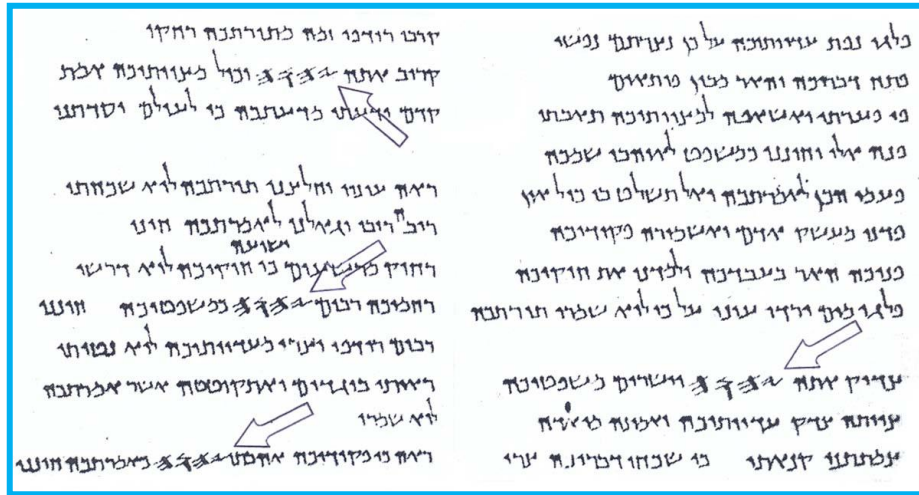 פלגי נפת עדוותיכה על כן נצרתם נפשי
פתח דבריכה והאר מבין פותאים
פי פערתי ואשאבה למצוותיכה תאבתי
פנה אלי וחונני כמשפט לאוהבי שמכה
פעמי הכן לאמרתכה ואל תשלט בי כול און
פדני מעשק אדם ואשמורה פקודיכה
פניכה האר בעבדכה ולמדני את חוקיכה
פלגי מים ירדו עיני על כי לוא שמרו תורתכה
צדיק אתה 𐤉𐤄𐤅𐤄 וישרים משפטיכה
צויתה צדק עדוותיכה ואמונה מואדה
צמתתני קנאתי כי שכחו דבריכה צרי
קרבו רודפי זמה מתורתכה רחקו
קרוב אתה 𐤉𐤄𐤅𐤄 וכול מצוותיכה אמת
קדם ידעתי מדעתכה כי לעולם יסדתני
ראה עוניי וחלצני תורתכה לוא שכחתי
ריבה ריבי וגאלני לאמרתכה חיני
ישועה
רחוק מרשעים כי חוקיכה לוא דרשו
רחמיכה רבים 𐤉𐤄𐤅𐤄 כמשפטיכה חונני
רבים רודפי וצרי מעדוותיכה לוא נטיתי
ראיתי בוגדים ואתקוטטה אשר אמרתכה
לוא שמרו
ראה כי פקודיכה אהבתי 𐤉𐤄𐤅𐤄 כאמרתכה חונני